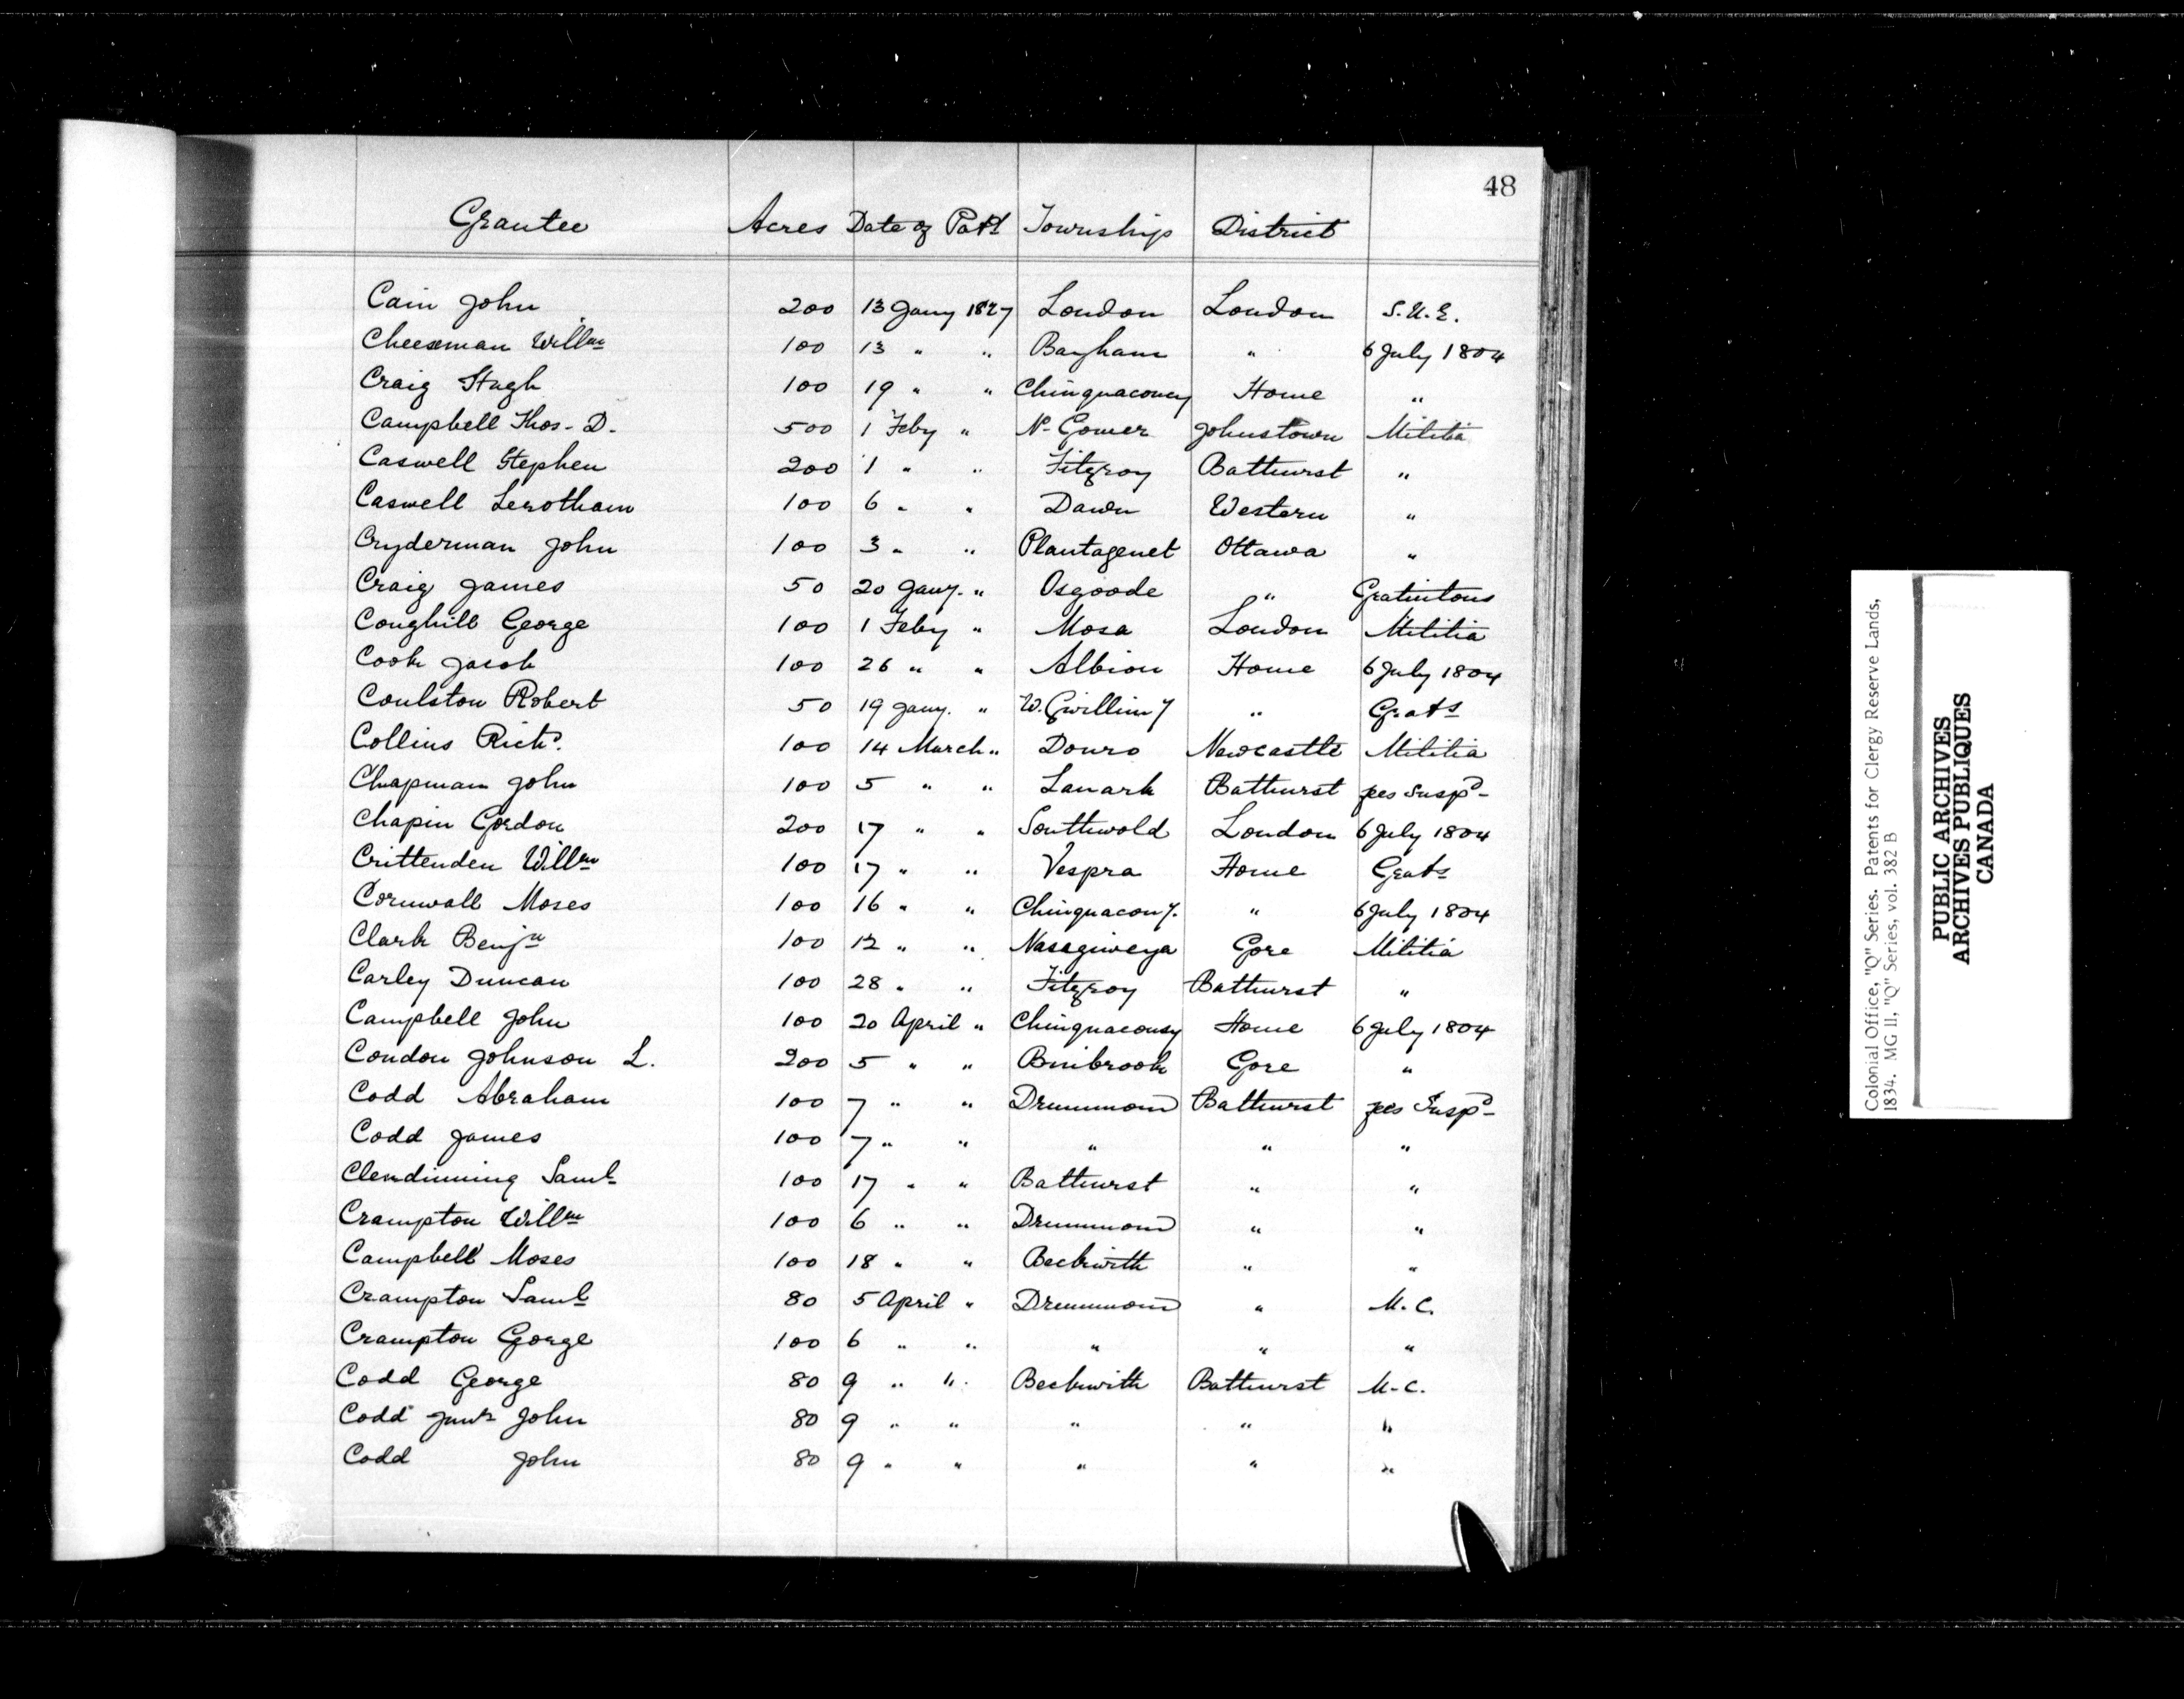 48
Grantee Acres Date of Patt Township District
Cain John 200 13 Jany 1827 London London S.U.E.
Cheesman Willm 100 13 " " Bayham " 6 July 1804
Craig Hugh 100 19 " " Chinguacousy Home "
Campbell Thos. D. 500 1 Feby " N. Gower Johnstown Militia
Caswell Stephen 200 1 " " Fitzroy Bathurst "
Caswell 100 6 " " Dawn Western "
Cryderman John 100 3 " " Plantagenet Ottawa "
Craig James 50 20 Jany. " Osgoode " Gratuitous
Coughill George 100 1 Feby " Mosa London Militia
Cook Jacob 100 26 " " Albion Home 6 July 1804
Coulston Robert 50 19 Jany. " W. Gwillimy " Grats
Collins Richd. 100 14 March " Douro Newcastle Militia
Chapman John 100 5 " " Lanark Bathurst fees Suspd
Chapin Gordon 200 17 " " Southwold London 6 July 1804
Crittenden Willm 100 17 " " Vespra Home Grats
Cornwall Moses 100 16 " " Chinguacouy. " 6 July 1804
Clark Benjn 100 12 " " Nasagiweya Gore Militia
Carley Duncan 100 28 " " Fitzroy Bathurst "
Campbell John 100 20 April " Chinguacousy Home 6 July 1804
Condon Johnson L. 200 5 " " Binbrook Gore "
Codd Abraham 100 7 " " Drummond Bathurst fees Suspd
Codd James 100 7 " " " " "
Clendinning Saml 100 17 " " Bathurst " "
Crampton Willm 100 6 " " Drummond " "
Campbell Moses 100 18 " " Beckwith " "
Crampton Saml 80 5 April " Drummond " M.C.
Crampton Gorge 100 6 " " " " "
Codd George 80 9 " " Beckwith Bathurst M.C.
Codd Junr John 80 9 " " " " "
Codd John 80 9 " " " " "
Colonial Office, "Q" Series. Patents for Clergy Reserve Lands,
1834. MG 11, "Q" Series, vol. 382 B
PUBLIC ARCHIVES
ARCHIVES PUBLIQUES
CANADA